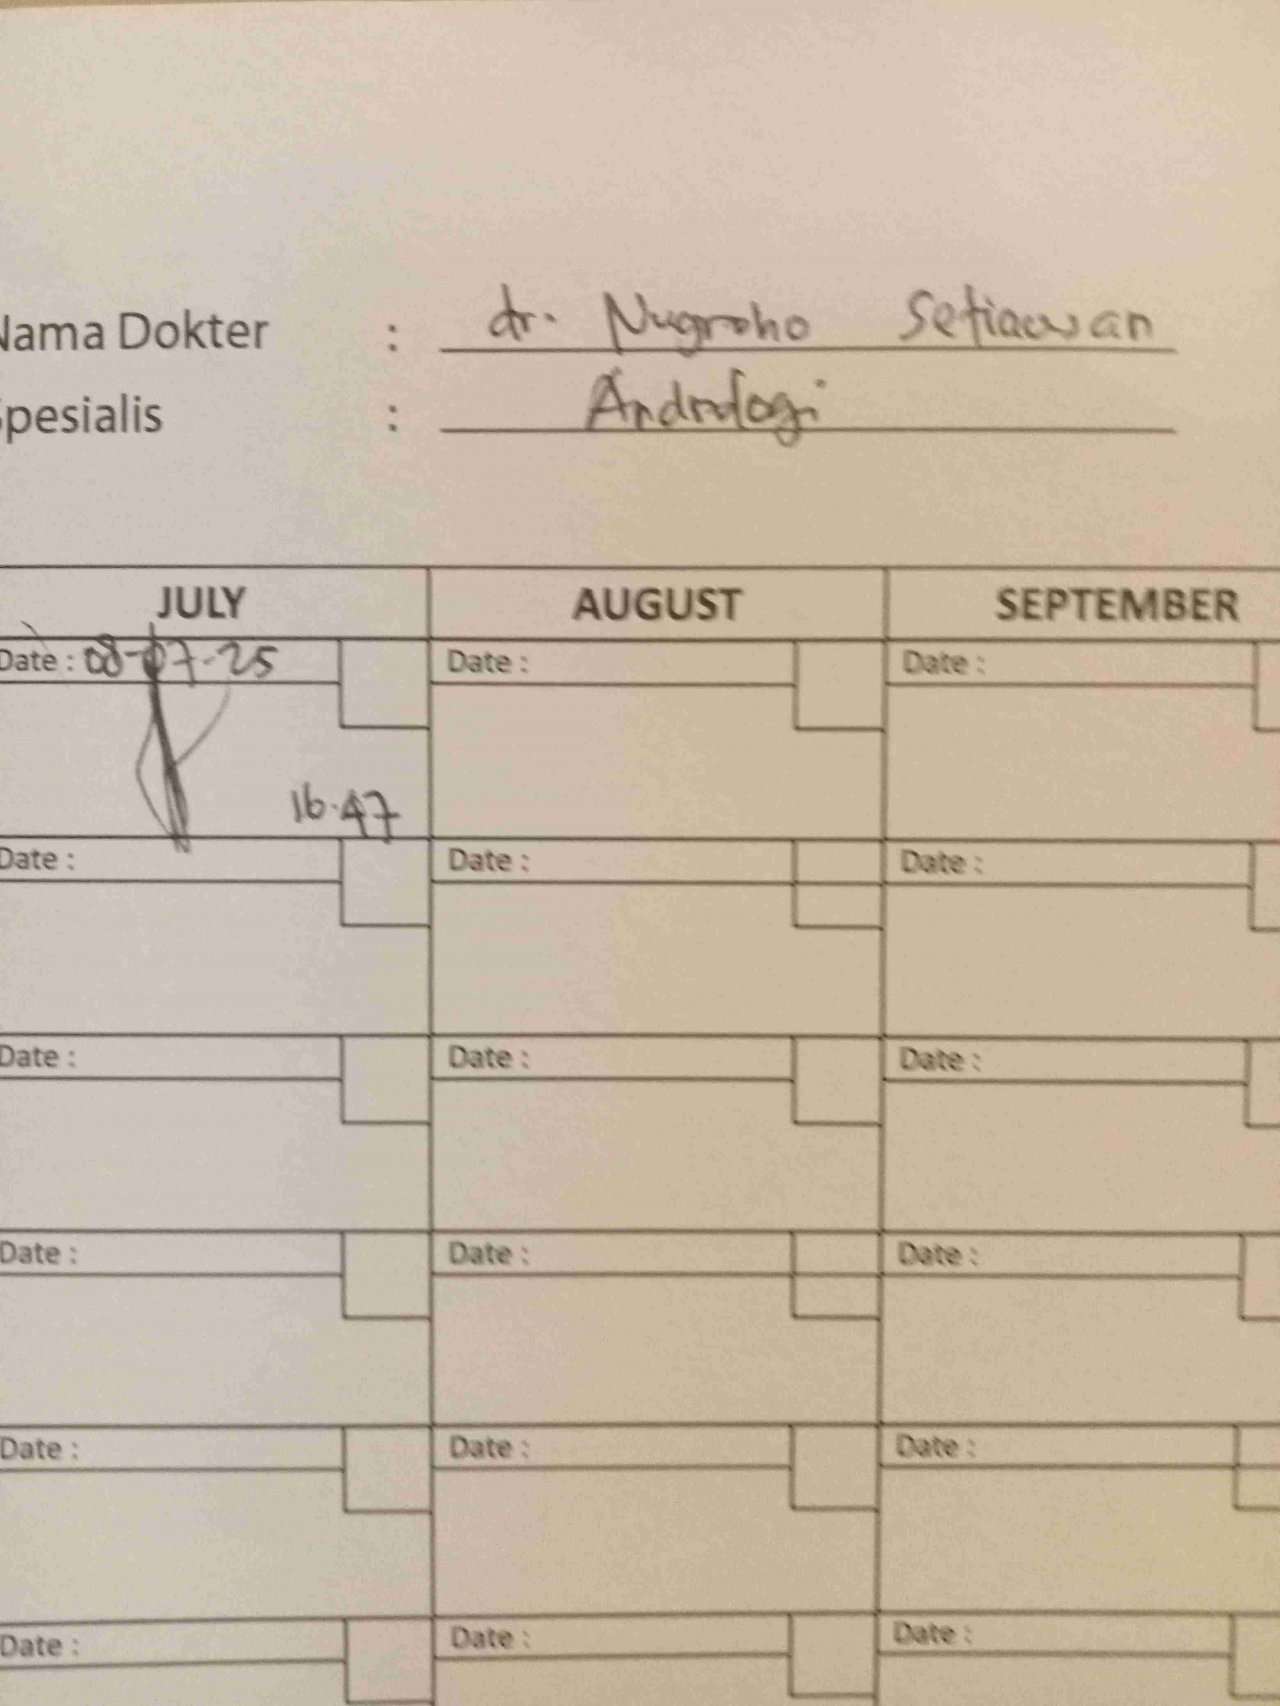 Nama Dokter : dr. Nugroho Setiawan
Spesialis : Andrologi
JULY AUGUST SEPTEMBER
Date : 08-07-25 Date : Date :
16.47
Date : Date : Date :
Date : Date : Date :
Date : Date : Date :
Date : Date : Date :
Date : Date : Date :